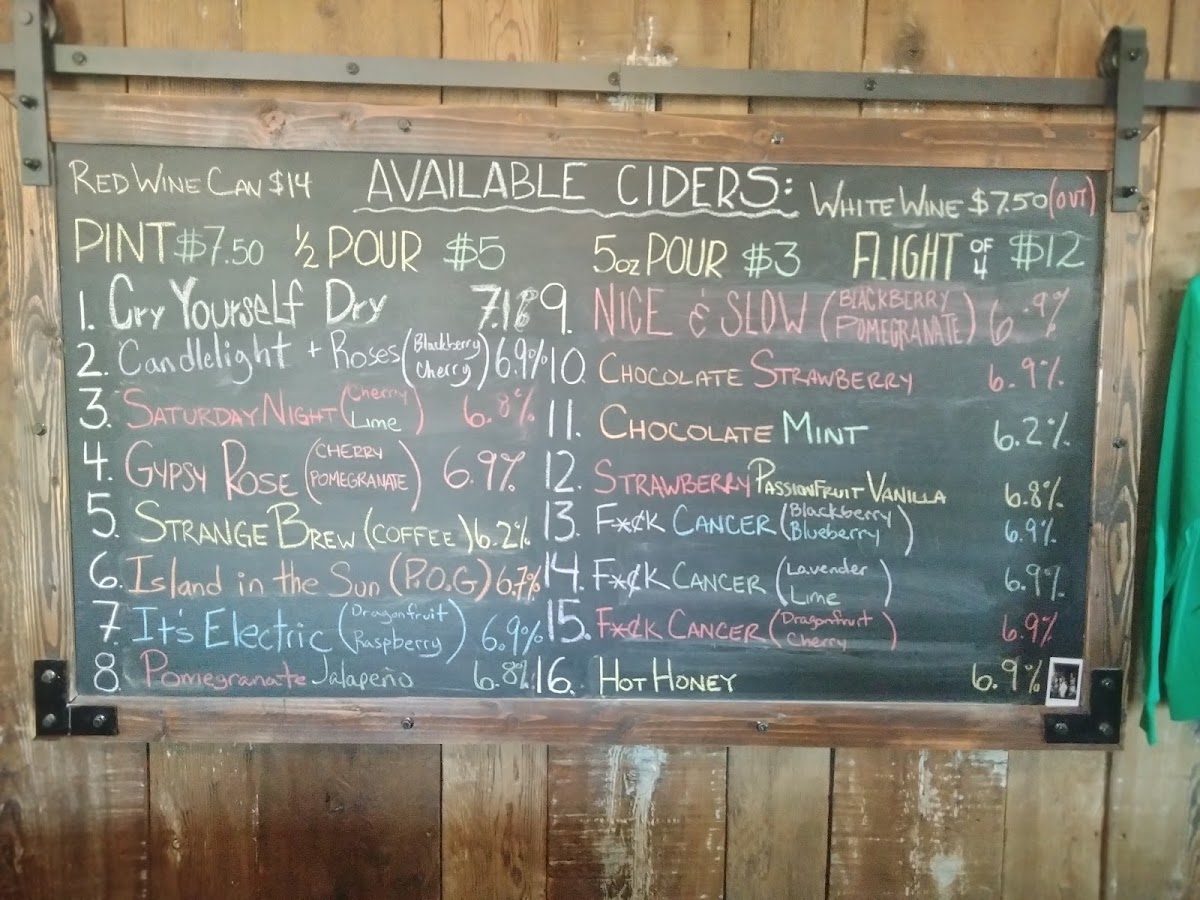 RED WINE CAN $14
AVAILABLE CIDERS:
WHITE WINE $7.50 (OUT)
PINT $7.50 ½ POUR $5
5oz POUR $3 FLIGHT OF 4 $12
1. Cry Yourself Dry
2. Candlelight + Roses (Blackberry Cherry) 6.9%
3. SATURDAY NIGHT (Cherry Lime) 6.8%
4. GYPSY ROSE (CHERRY POMEGRANATE) 6.9%
5. STRANGE BREW (COFFEE) 6.2%
6. Island in the Sun (P.O.G) 6.7%
7. IT'S Electric (Dragonfruit Raspberry) 6.9%
8. Pomegranate Jalapeño 6.8%
9. NICE & SLOW (BLACKBERRY POMEGRANATE) 6.9%
10. CHOCOLATE STRAWBERRY 6.9%
11. CHOCOLATE MINT 6.2%
12. STRAWBERRY PASSIONFRUIT VANILLA 6.8%
13. F*¢K CANCER (Blackberry Blueberry) 6.9%
14. F*¢K CANCER (Lavender Lime) 6.9%
15. F*¢K CANCER (Dragonfruit Cherry) 6.9%
16. HOT HONEY 6.9%